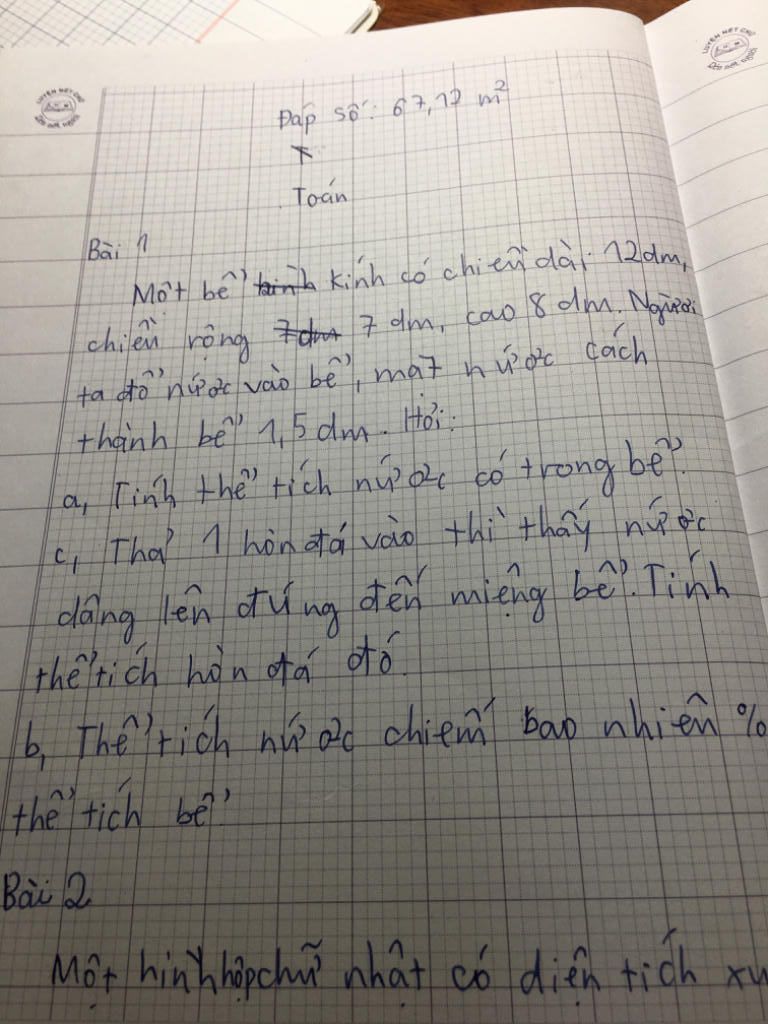 Đáp số: 67,12 m²
T
Toán
Bài 1
Một bể hình kính có chiều dài 12dm,
chiều rộng 7dm 7 dm, cao 8 dm. Người
ta đổ nước vào bể, mặt nước cách
thành bể 1,5 dm. Hỏi:
a, Tính thể tích nước có trong bể.
c, Thả 1 hòn đá vào thì thấy nước
dâng lên đúng đến miệng bể. Tính
thể tích hòn đá đó.
b, Thể tích nước chiếm bao nhiên %
thể tích bể
Bài 2
Một hình hộp chữ nhật có diện tích xu